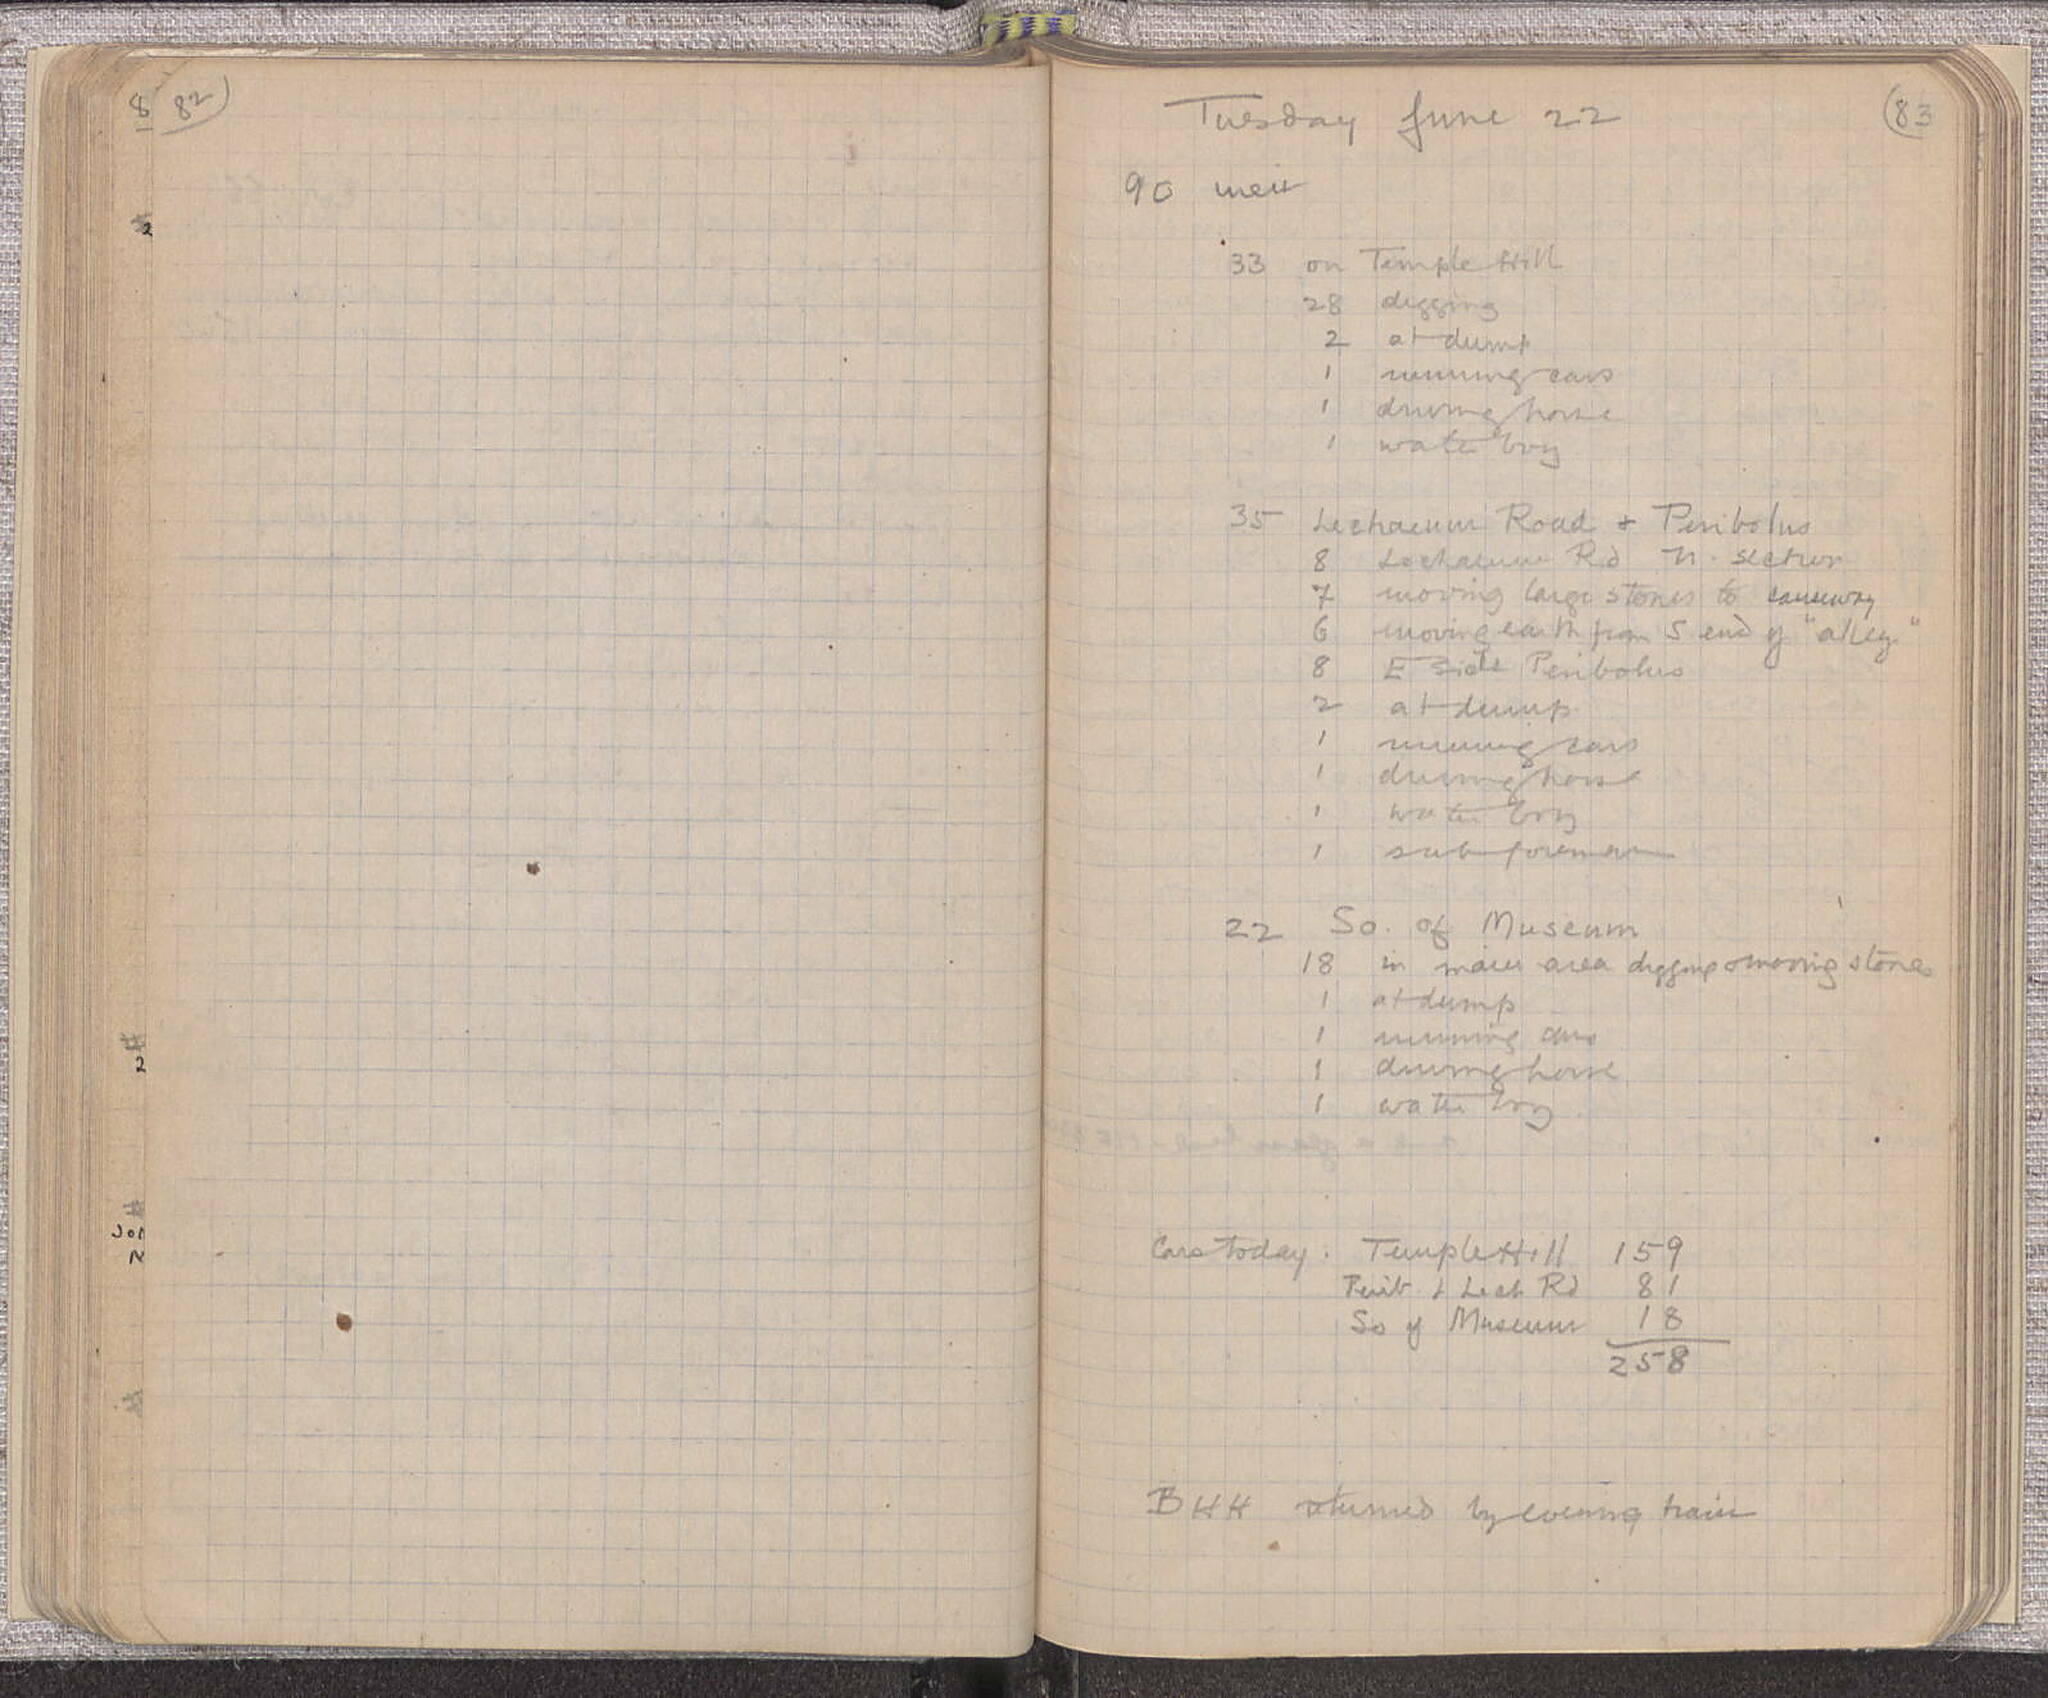 8
82
2
2
Tuesday June 22
83
90 men
33 on Temple Hill
28 digging
2 at dump
1 running cars
1 driving horse
1 water boy
35 Lechaeum Road + Peribolus
8 Lechaeum Rd N. section
7 moving large stones to causeway
6 moving earth from S end of "alley"
8 E side Peribolus
2 at dump
1 running cars
1 driving horse
1 water boy
1 sub foreman
22 So. of Museum
18 in main area digging & moving stones
1 at dump
1 running cars
1 driving horse
1 water boy
Cars today. Temple Hill 159
Perib. & Lech Rd 81
So of Museum 18
258
BHH returned by evening train